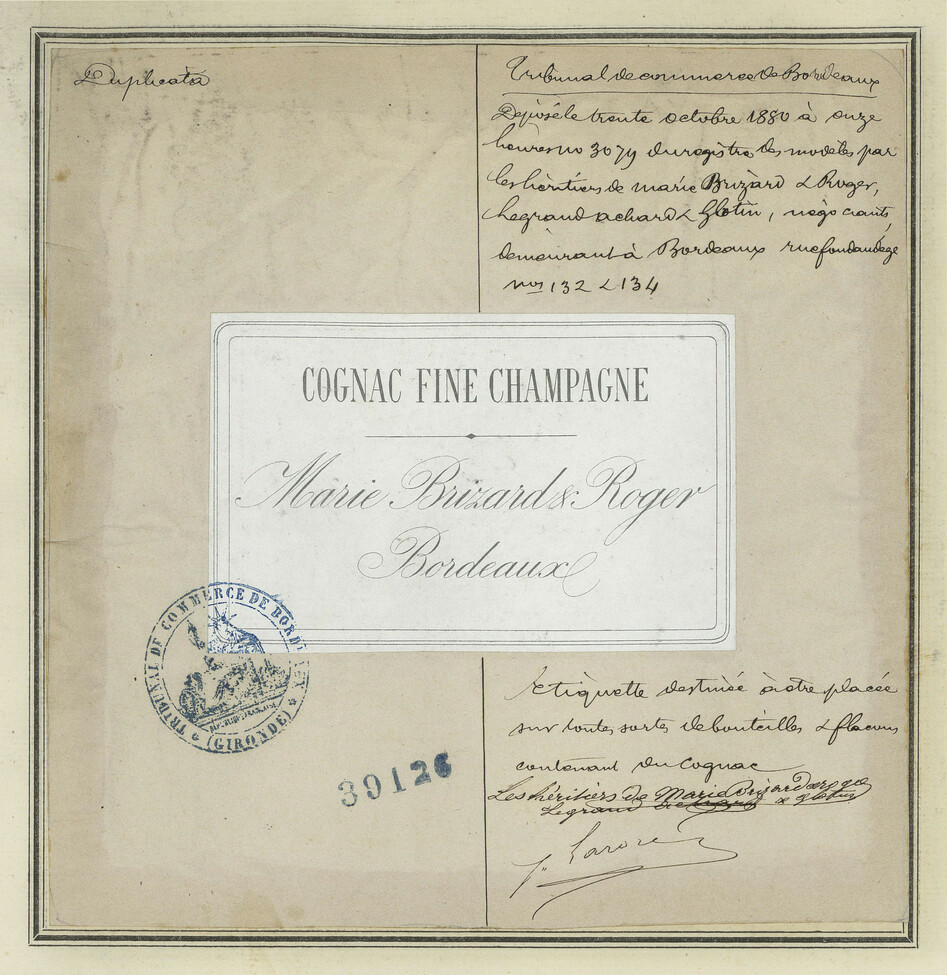 Duplicata
Tribunal de commerce de Bordeaux
Déposé le trente octobre 1880 à onze
heures no 3079 du registre des modèles par
les héritiers de marie Brizard & Roger,
Legrand achard & Glotin, négociants,
demeurant à Bordeaux rue fondaudège
nos 132 & 134
COGNAC FINE CHAMPAGNE
Marie Brizard & Roger
Bordeaux
TRIBUNAL DE COMMERCE DE BORDEAUX
(GIRONDE)
39126
Etiquette destinée à être placée
sur toutes sortes de bouteilles & flacons
contenant du Cognac
Les héritiers de Marie Brizard & Roger
Legrand achard & Glotin